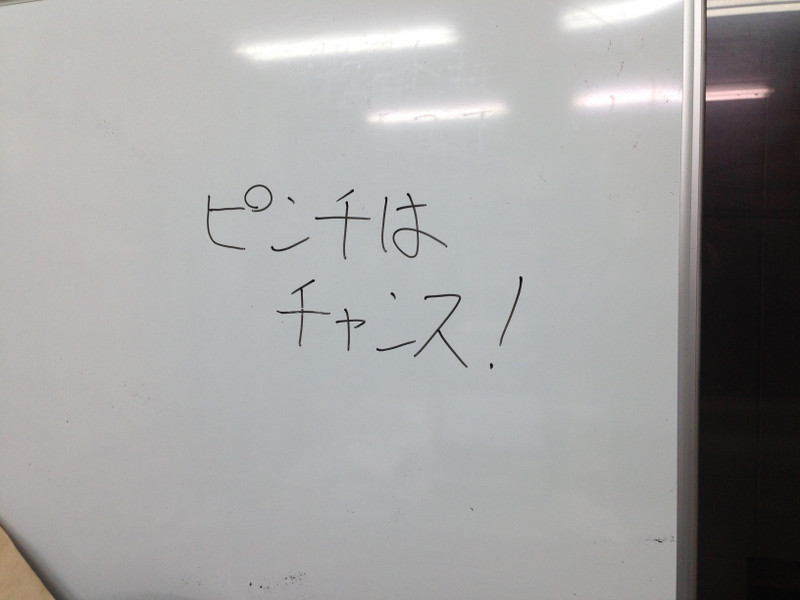 ピンチは
チャンス!